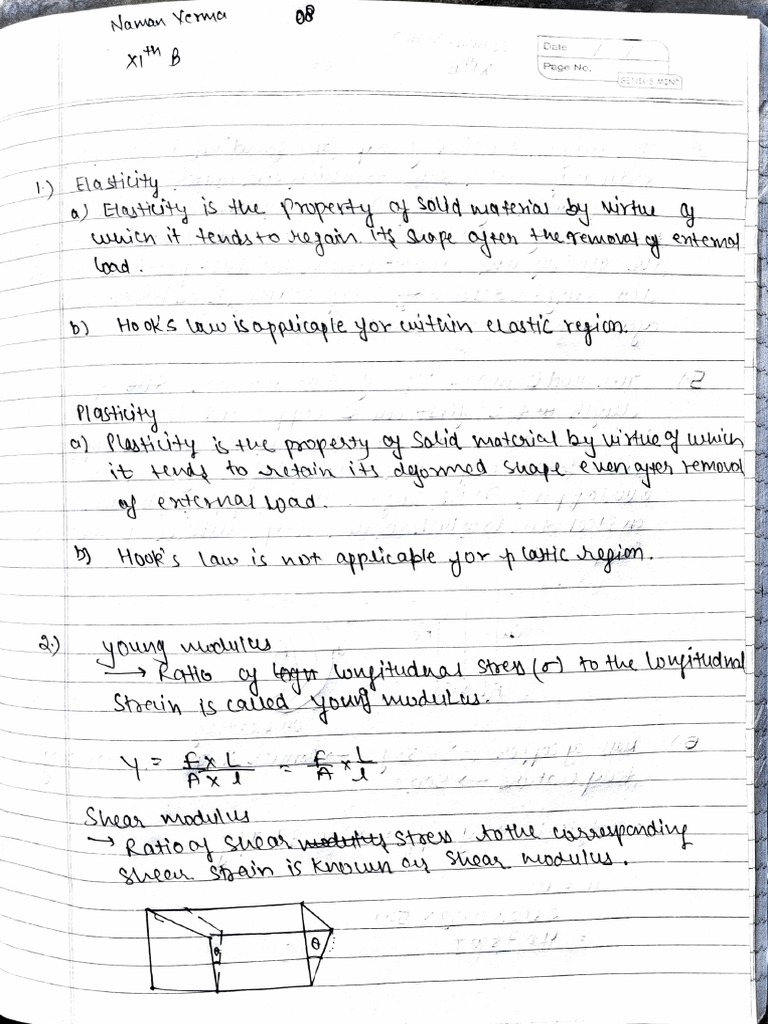 Naman Verma 08
XIth B
Date / /
Page No.
GENIUS MIND
1.) Elasticity
a) Elasticity is the property of solid material by virtue of
which it tends to regain its shape after the removal of external
load.
b) Hook's law is applicaple for within elastic region.
Plasticity
a) Plasticity is the property of solid material by virtue of which
it tends to retain its deformed shape even after removal
of external load.
b) Hook's law is not applicable for plastic region.
2.) young modulus
→ Ratio of longitudnal stress (σ) to the longitudnal
strain is called young modulus.
Y = F x L / A x l = F/A x L/l
Shear modulus
→ Ratio of shear modulus stress to the corresponding
shear strain is known as shear modulus.
θ θ